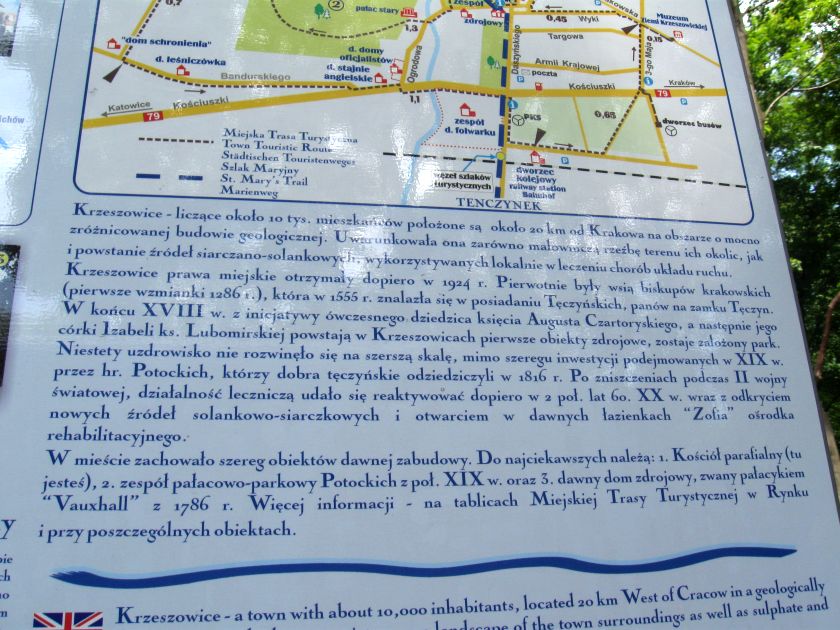 0,7
2
pałac stary
1,3
zespół
zdrojowy
0,45
Wyki
Targowa
Muzeum
Ziemi Krzeszowickiej
0,15
"dom schronienia"
d. leśniczówka
d. domy
oficjalistów
d. stajnie
angielskie
Ogrodowa
Daszyńskiego
Armii Krajowej
poczta
3-go Maja
Bandurskiego
Katowice
79
Kościuszki
1,1
zespół
d. folwarku
PKS
Kościuszki
79
Kraków
0,65
dworzec busów
Miejska Trasa Turystyczna
Town Touristic Route
Städtischen Touristenweges
Szlak Maryjny
St. Mary's Trail
Marienweg
węzeł szlaków
turystycznych
dworzec
kolejowy
railway station
Bahnhof
TENCZYNEK
Krzeszowice - liczące około 10 tys. mieszkańców położone są około 20 km od Krakowa na obszarze o mocno
zróżnicowanej budowie geologicznej. Uwarunkowała ona zarówno malowniczą rzeźbę terenu ich okolic, jak
i powstanie źródeł siarczano-solankowych, wykorzystywanych lokalnie w leczeniu chorób układu ruchu.
Krzeszowice prawa miejskie otrzymały dopiero w 1924 r. Pierwotnie były wsią biskupów krakowskich
(pierwsze wzmianki 1286 r.), która w 1555 r. znalazła się w posiadaniu Tęczyńskich, panów na zamku Tęczyn.
W końcu XVIII w. z inicjatywy ówczesnego dziedzica księcia Augusta Czartoryskiego, a następnie jego
córki Izabeli ks. Lubomirskiej powstają w Krzeszowicach pierwsze obiekty zdrojowe, zostaje założony park.
Niestety uzdrowisko nie rozwinęło się na szerszą skalę, mimo szeregu inwestycji podejmowanych w XIX w.
przez hr. Potockich, którzy dobra tęczyńskie odziedziczyli w 1816 r. Po zniszczeniach podczas II wojny
światowej, działalność leczniczą udało się reaktywować dopiero w 2 poł. lat 60. XX w. wraz z odkryciem
nowych źródeł solankowo-siarczkowych i otwarciem w dawnych łazienkach "Zofia" ośrodka
rehabilitacyjnego.
W mieście zachowało szereg obiektów dawnej zabudowy. Do najciekawszych należą: 1. Kościół parafialny (tu
jesteś), 2. zespół pałacowo-parkowy Potockich z poł. XIX w. oraz 3. dawny dom zdrojowy, zwany pałacykiem
"Vauxhall" z 1786 r. Więcej informacji - na tablicach Miejskiej Trasy Turystycznej w Rynku
i przy poszczególnych obiektach.
Krzeszowice - a town with about 10,000 inhabitants, located 20 km West of Cracow in a geologically
landscape of the town surroundings as well as sulphate and